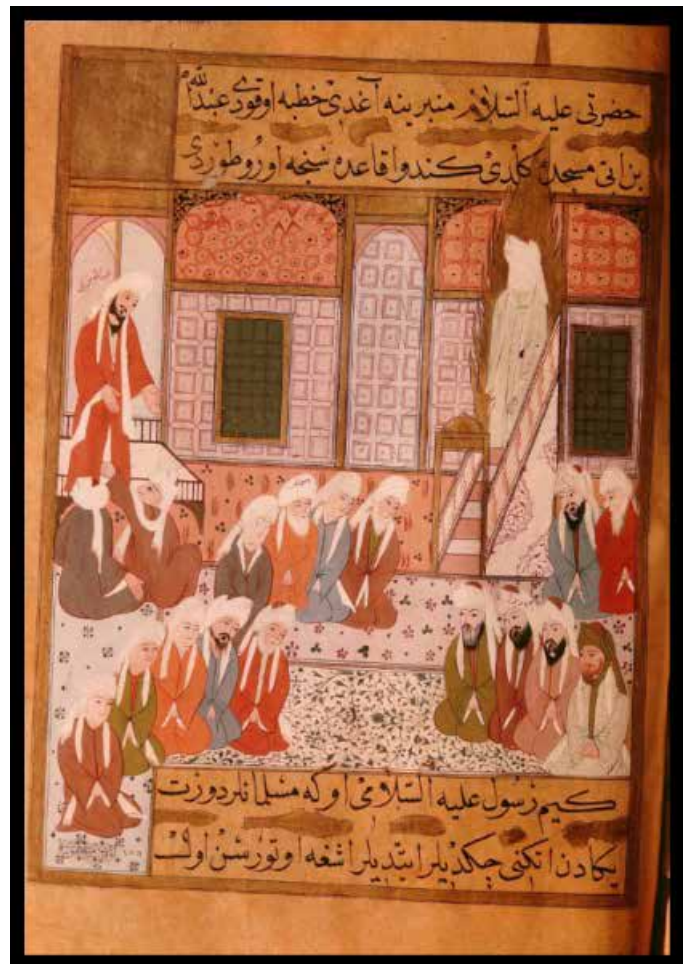 حضرتی علیه السلام منبرینه آغدی خطبه اوقودی عبدالله
بن ابی مسجده کلدی کندو قاعده سنجه اورو طوردی
کیم رسول علیه السلامی اوکه مسلمانلر دورت
یکادن اتکنی چکدیلر ایتدیلر اشغه اوتور شن اول